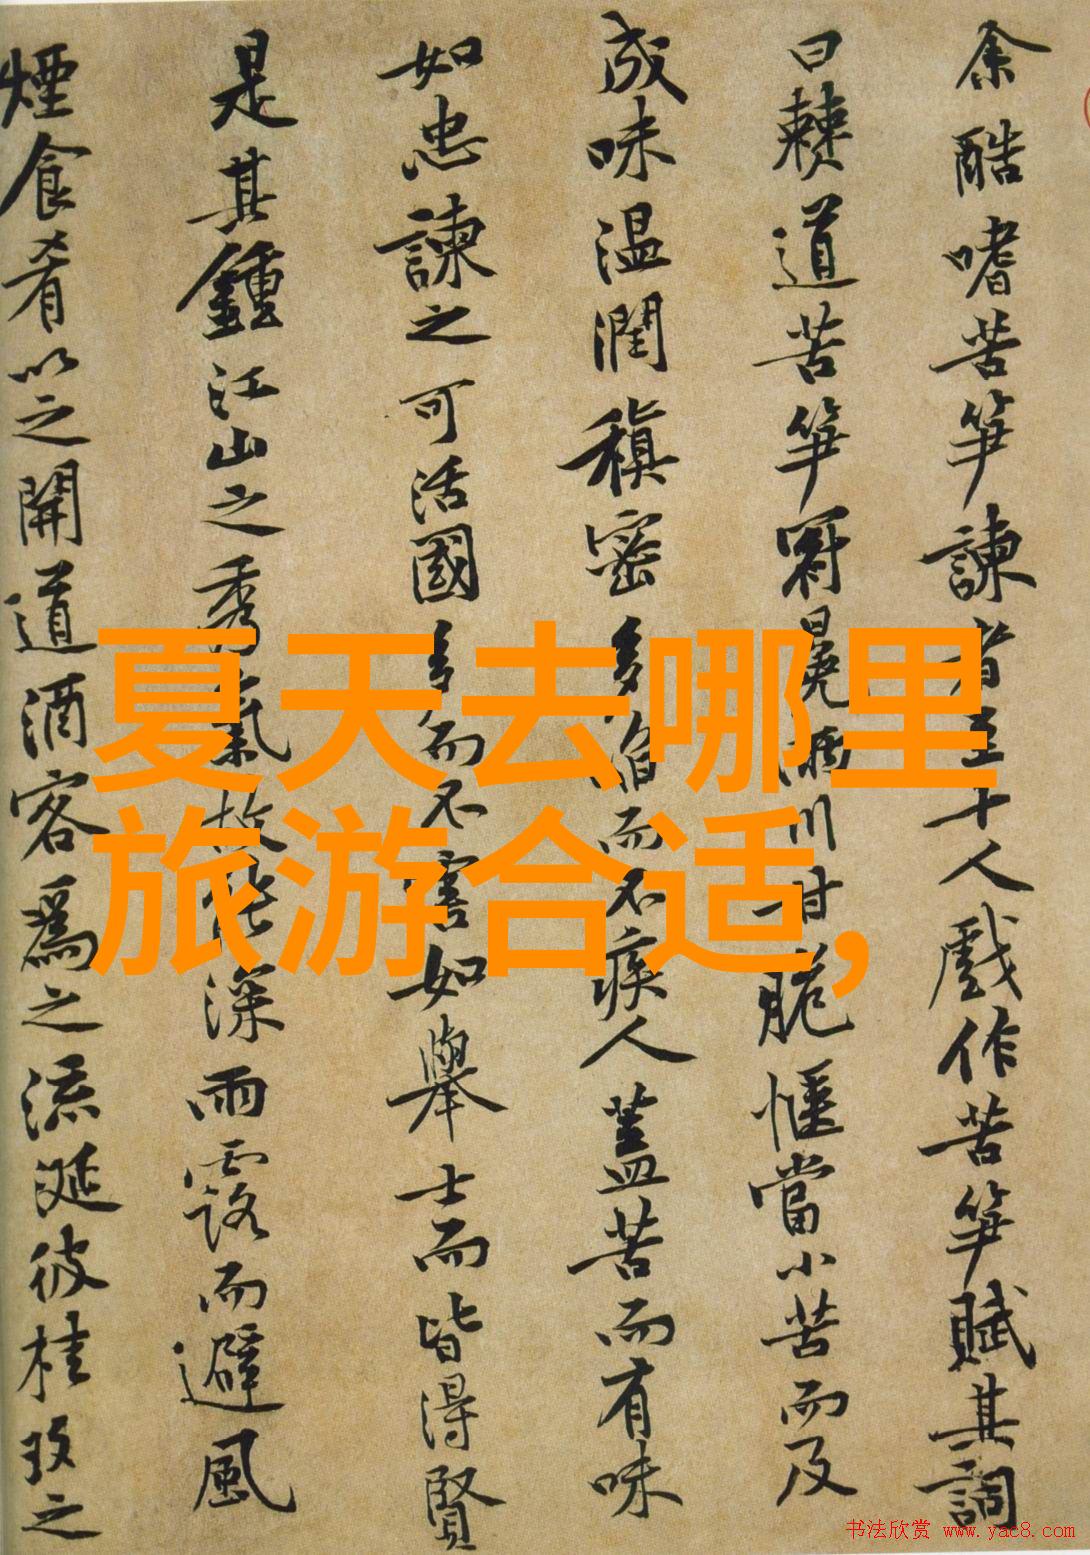 余酷嗜苦笋諫者至十人戲作苦笋賦其詞
曰僰道苦笋冠冕兩川甘脆愜當小苦而及
成味温潤稹密多啗而不疾人蓋苦而有味
如忠諫之可活國多而不害如舉士而皆得賢
是其鍾江山之秀氣故能深雨露而避風
煙食肴以之開道酒客爲之流涎彼桂玫之
夏天去哪里
旅游合适,
书法欣赏 www.yac8.com